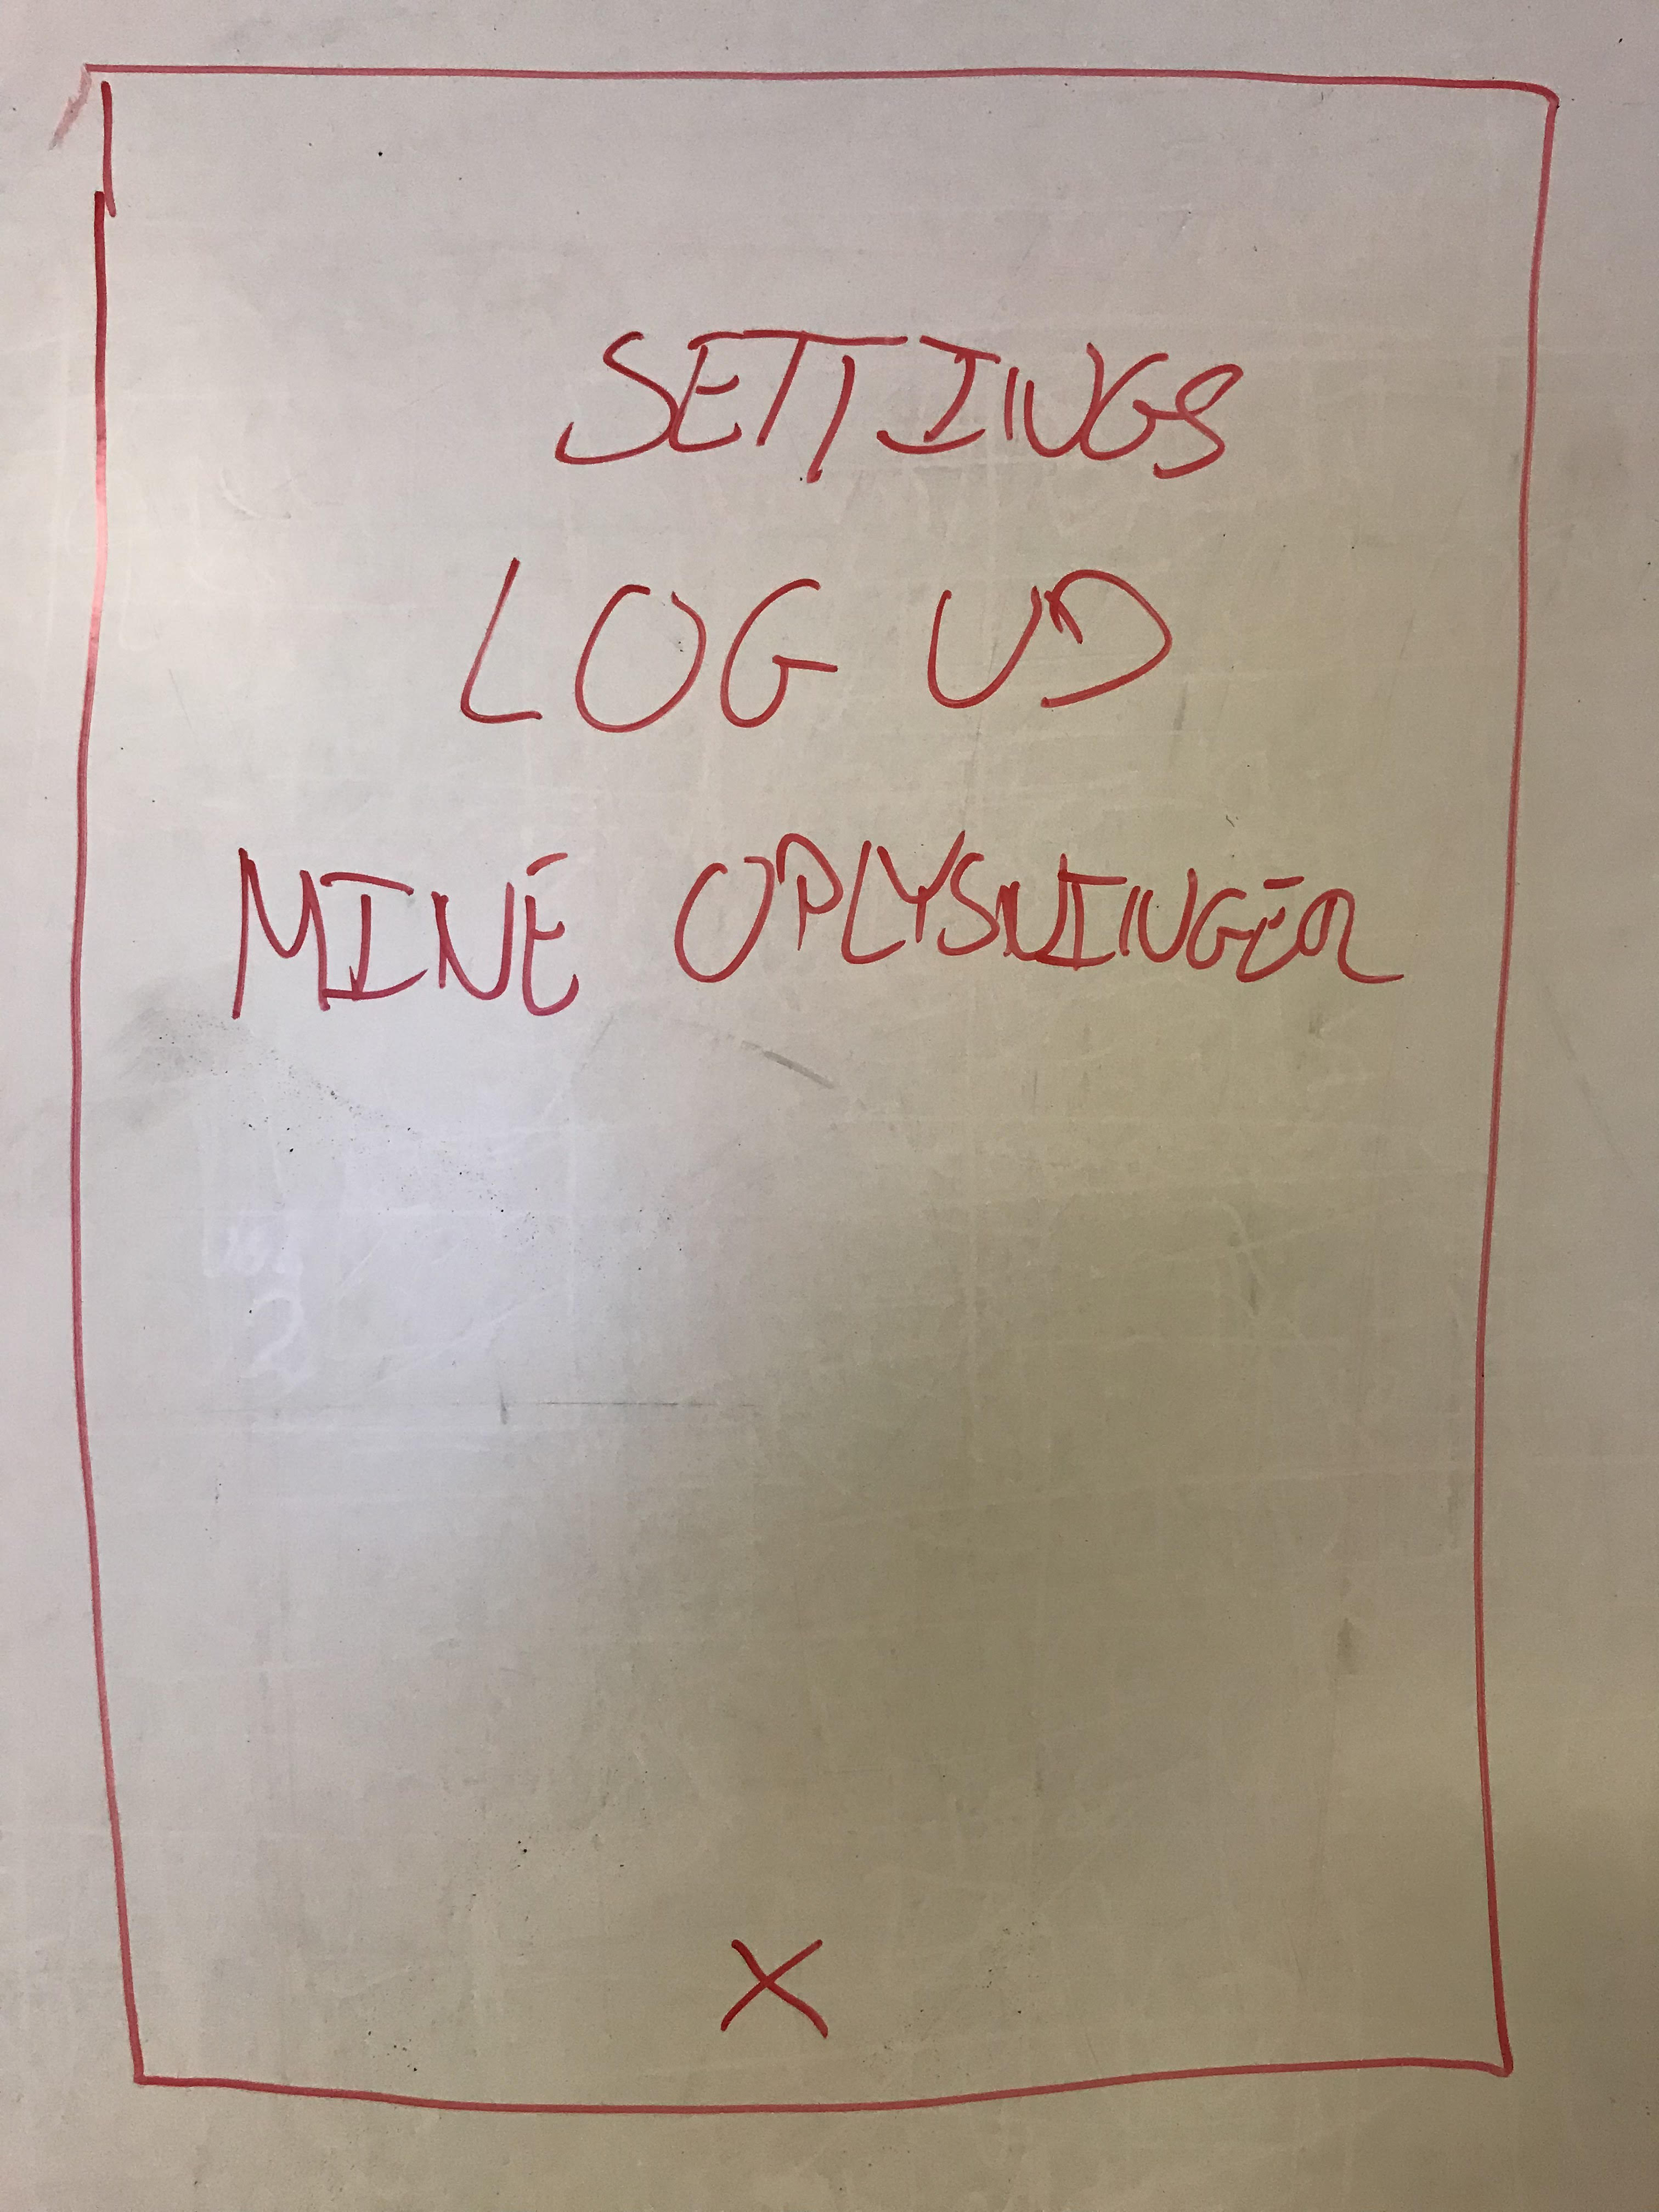 SETTINGS
LOG UD
MINE OPLYSNINGER
X